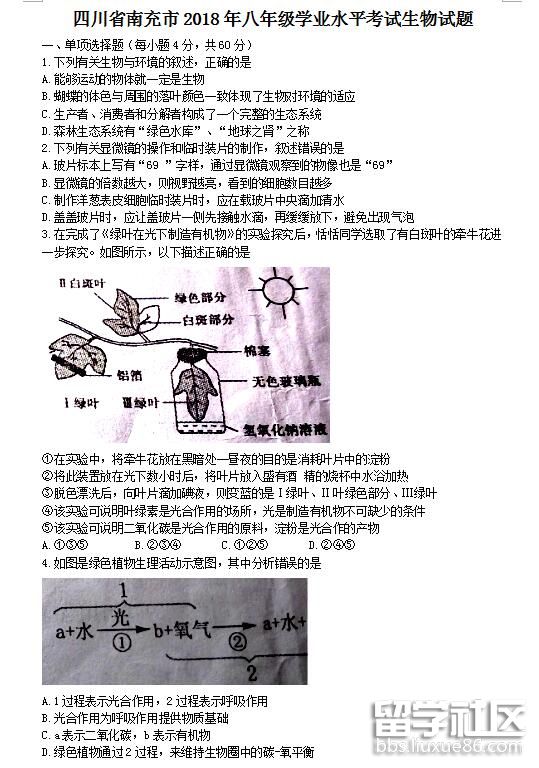 四川省南充市2018年八年级学业水平考试生物试题
一、单项选择题（每小题4分，共60分）
1.下列有关生物与环境的叙述，正确的是
A.能够运动的物体就一定是生物
B.蝴蝶的体色与周围的落叶颜色一致体现了生物对环境的适应
C.生产者、消费者和分解者构成了一个完整的生态系统
D.森林生态系统有“绿色水库”、“地球之肾”之称
2.下列有关显微镜的操作和临时装片的制作，叙述错误的是
A.玻片标本上写有“69 ”字样，通过显微镜观察到的物像也是“69”
B.显微镜的倍数越大，则视野越亮，看到的细胞数目越多
C.制作洋葱表皮细胞临时装片时，应在载玻片中央滴加清水
D.盖盖玻片时，应让盖玻片一侧先接触水滴，再缓缓放下，避免出现气泡
3.在完成了《绿叶在光下制造有机物》的实验探究后，恬恬同学选取了有白斑叶的牵牛花进
一步探究。如图所示，以下描述正确的是
II白斑叶
绿色部分
白斑部分
棉塞
铝箔
无色玻璃瓶
I绿叶
III绿叶
氢氧化钠溶液
①在实验中，将牵牛花放在黑暗处一昼夜的目的是消耗叶片中的淀粉
②将此装置放在光下数小时后，将叶片放入盛有酒 精的烧杯中水浴加热
③脱色漂洗后，向叶片滴加碘液，则变蓝的是Ⅰ绿叶、Ⅱ叶绿色部分、Ⅲ绿叶
④该实验可说明叶绿素是光合作用的场所，光是制造有机物不可缺少的条件
⑤该实验可说明二氧化碳是光合作用的原料，淀粉是光合作的产物
A.①③⑤ B.②③④ C.①②⑤ D.②④⑤
4.如图是绿色植物生理活动示意图，其中分析错误的是
1
a+水 光 ① b+氧气 ② a+水+
2
A.1过程表示光合作用，2过程表示呼吸作用
B.光合作用为呼吸作用提供物质基础
C.a表示二氧化碳，b表示有机物
D.绿色植物通过2过程，来维持生物圈中的碳-氧平衡
留学社区
bbs.liuxue86.com